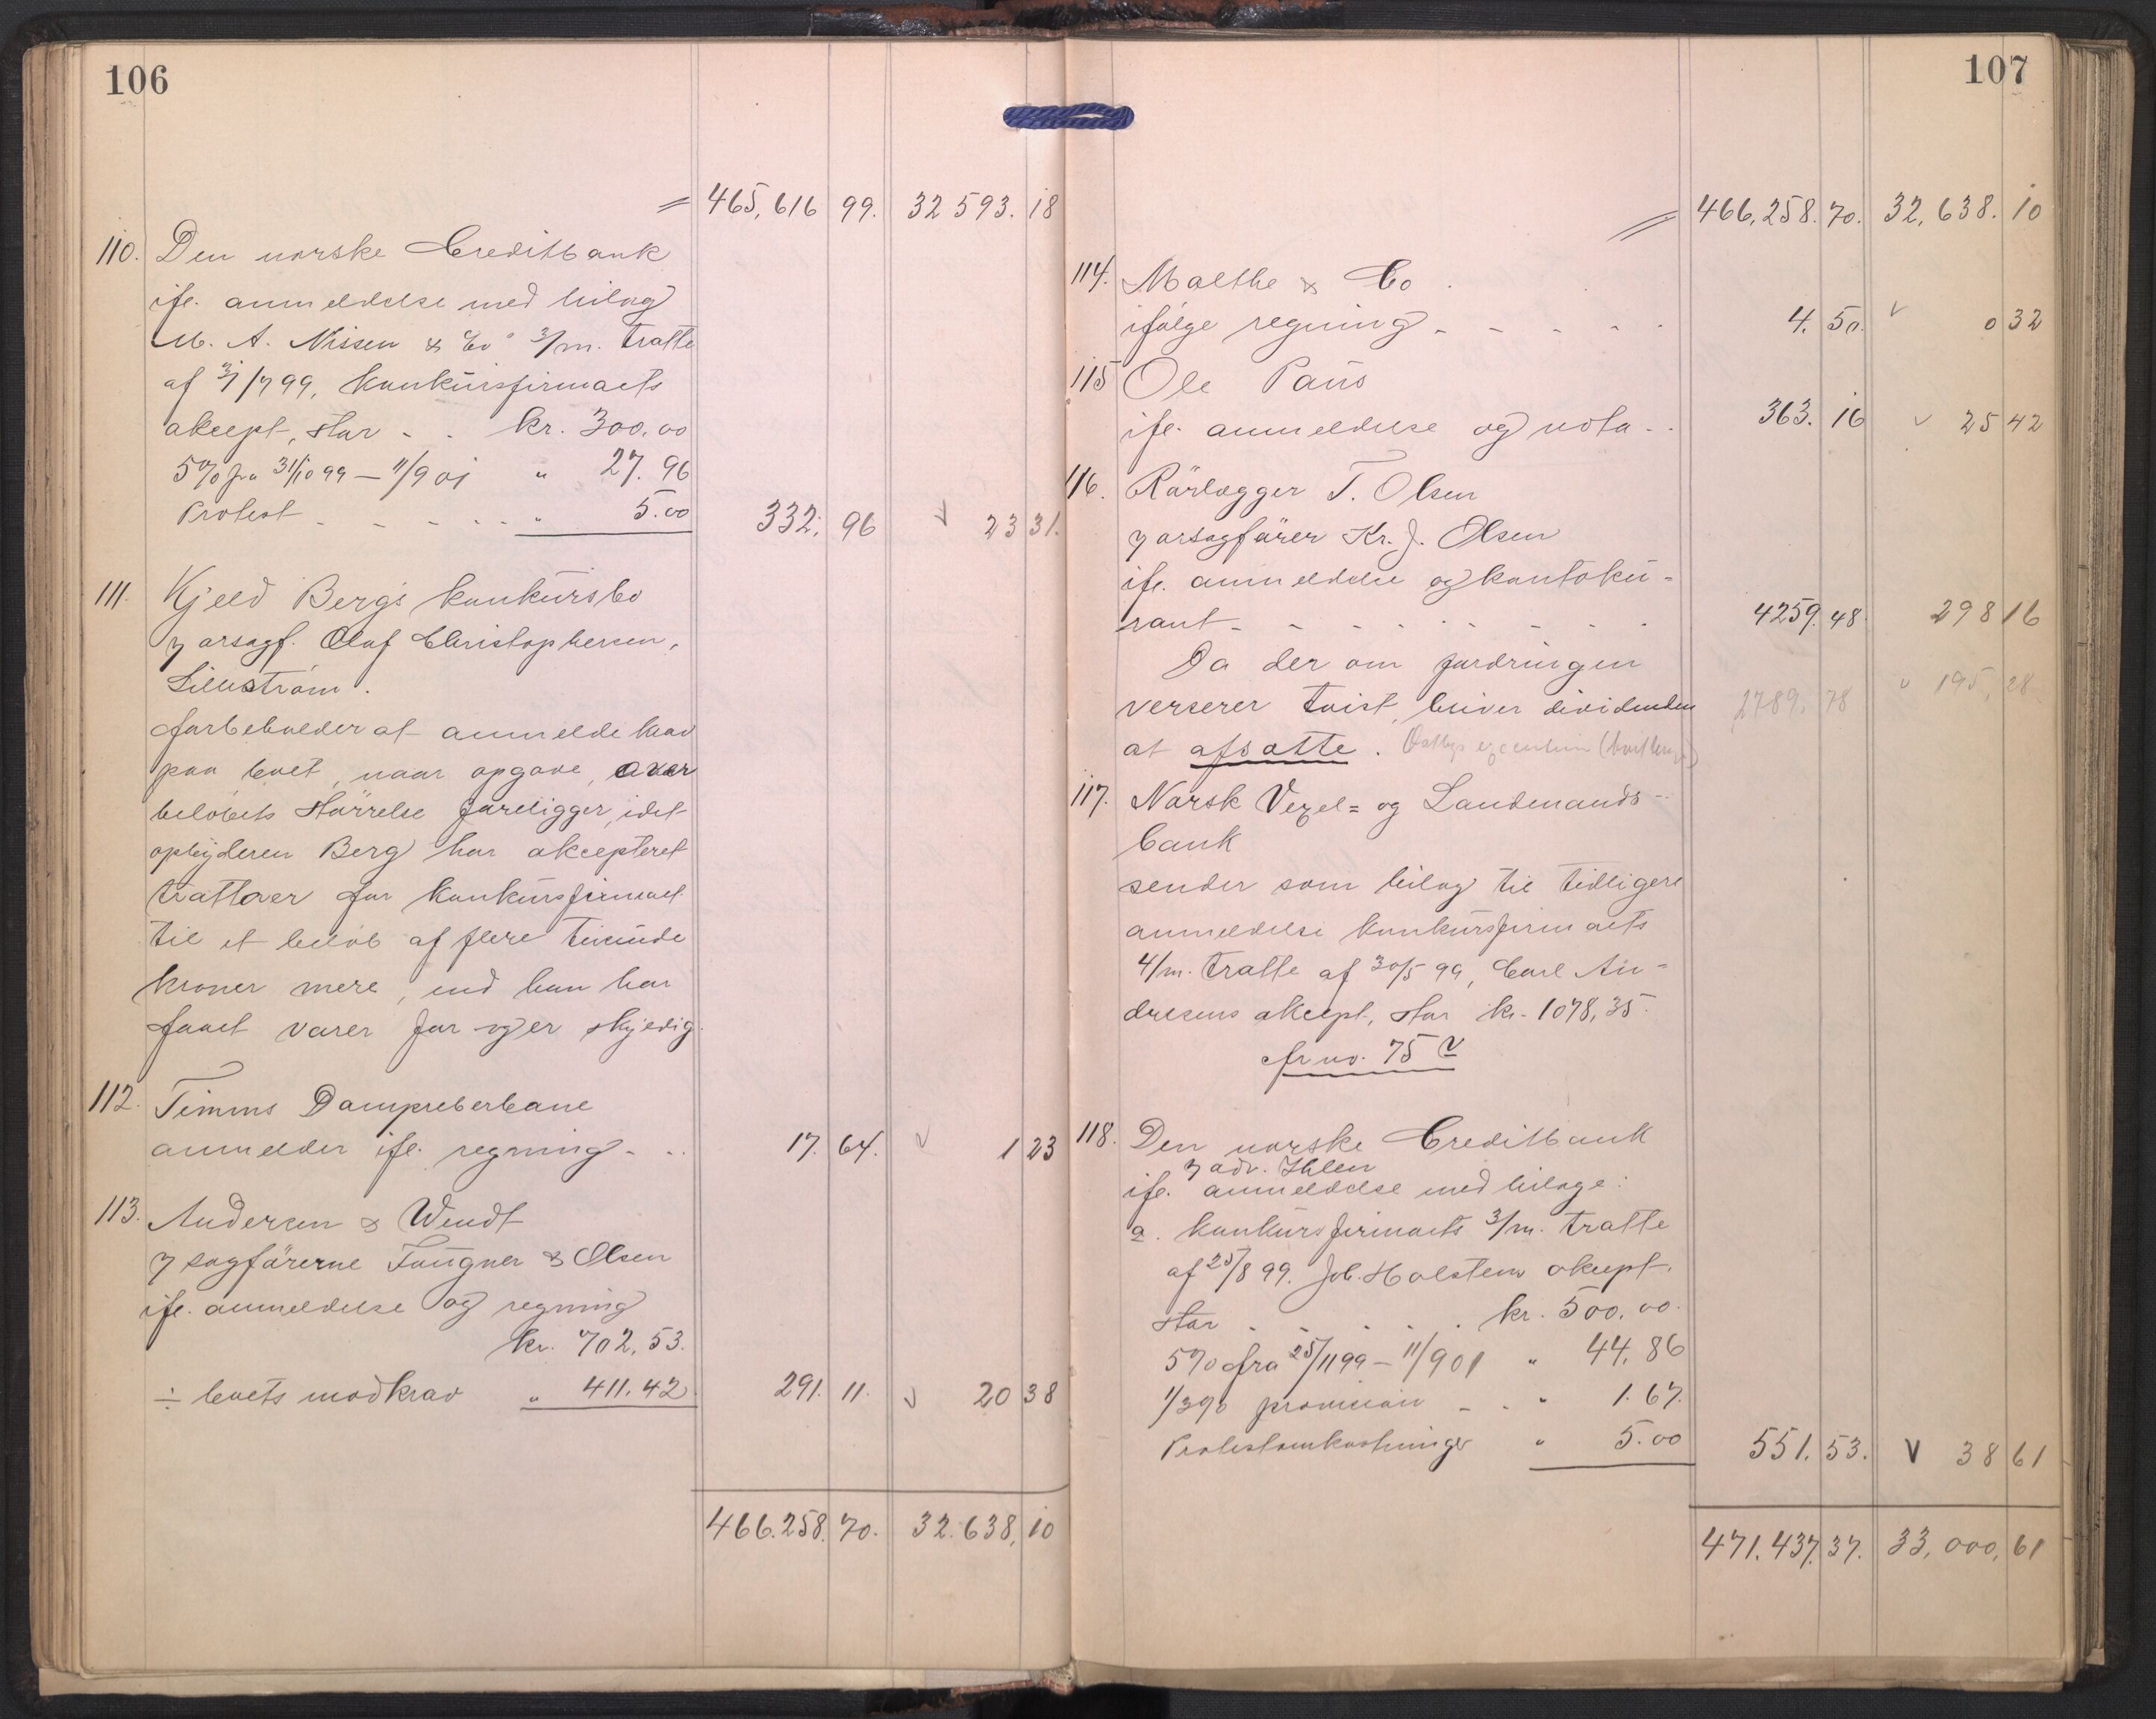 106
= 465,616 99. 32 593. 18
110. Den norske Creditbank
ifl. anmeldelse med bilag
M. A. Nissen & Co 3/m. tratte
af 31/7 99, konkursfirmaets
akcept, stor . . kr. 300.00
5% fra 31/10 99 – 11/9 01 " 27.96
Protest . . . . . " 5.00 332. 96 v 23 31.
111. Kjeld Bergs konkursbo
v/ orsagf. Oluf Christophersen,
Lillestrøm.
forbeholder at anmelde krav
paa boet, naar opgave over
beløbets størrelse foreligger, idet
opbyderen Berg har akcepteret
trattaer for konkursfirmaet
til et beløb af flere tusinde
kroner mere, end han har
faaet varer for og er skyldig.
112. Timms Dampreberbane
anmelder ifl. regning . . . 17. 64. v 1 23
113. Andersen & Wendt
v/ sagførerne Fougner & Olsen
ifl. anmeldelse og regning
kr. 702.53.
÷ boets modkrav " 411.42 291. 11. v 20 38
466.258. 70. 32.638, 10
107
= 466,258. 70. 32,638. 10
114. Malthe & Co.
ifølge regning . . . . . 4. 50. v 0 32
115 Ole Paus
ifl. anmeldelse og nota . . 363. 16 v 25 42
116. Rørlægger T. Olsen
v/ orsagfører Kr. J. Olsen
ifl. anmeldelse og kontoku-
rant . . . . . . . . 4259. 48. 298 16
Da der om fordringen
verserer tvist, bliver dividenden 2789. 78 v 195, 28
at afsætte.
117. Norsk Vexel= og Landmands-
bank
sender som bilag til tidligere
anmeldelse konkursfirmaets
4/m. tratte af 30/5 99, Carl An-
dresens akcept, stor kr. 1078,35.
cfr no. 75 v
118. Den norske Creditbank
v/ adv. Ihlen
ifl. anmeldelse med bilage:
a. konkursfirmaets 3/m. tratte
af 25/8 99. Joh. Holstens akcept.
stor . . . . . kr. 500.00.
5% fra 25/11 99 – 11/9 01 " 44.86
1/3% provision . . " 1.67.
Protestomkostninger " 5.00 551. 53. v 38 61
471.437. 37. 33,000, 61